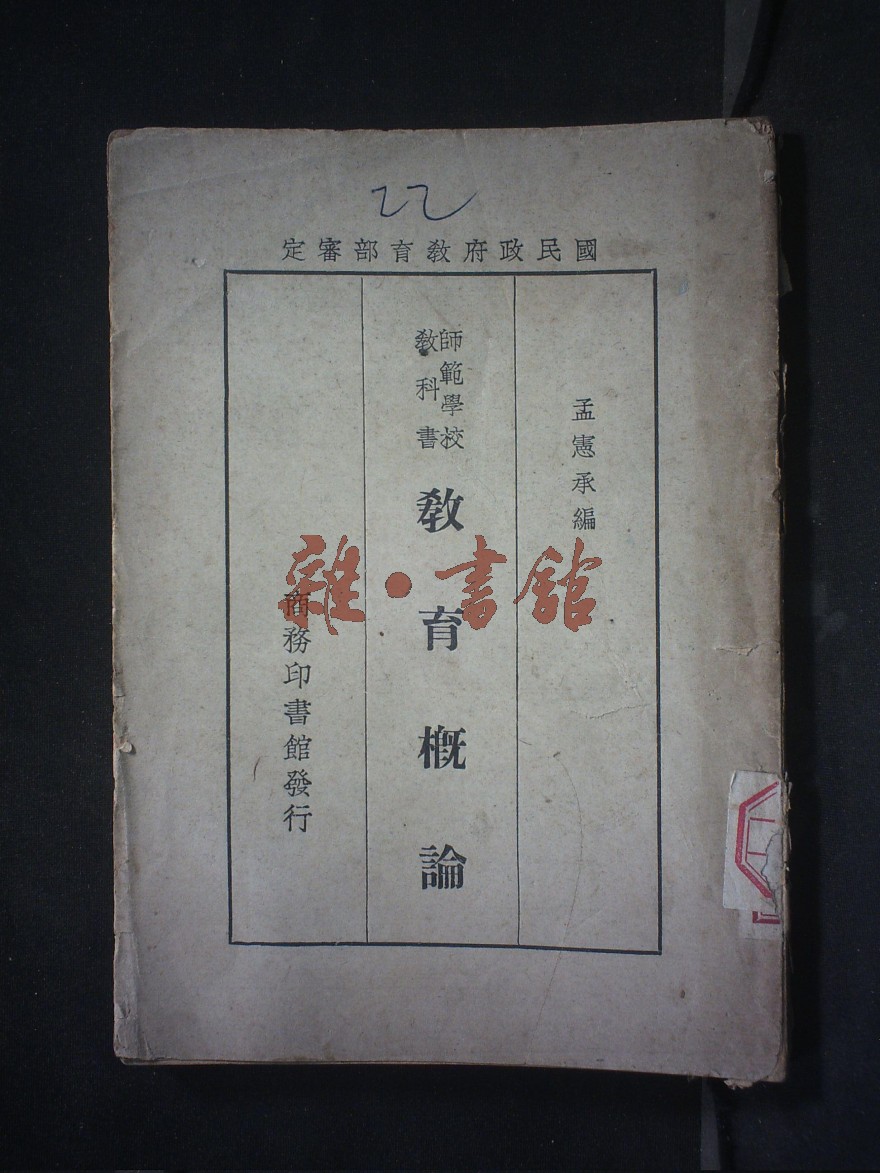 22
國民政府教育部審定
孟憲承編
師範學校
教科書
教育概論
商務印書館發行
雜·書館